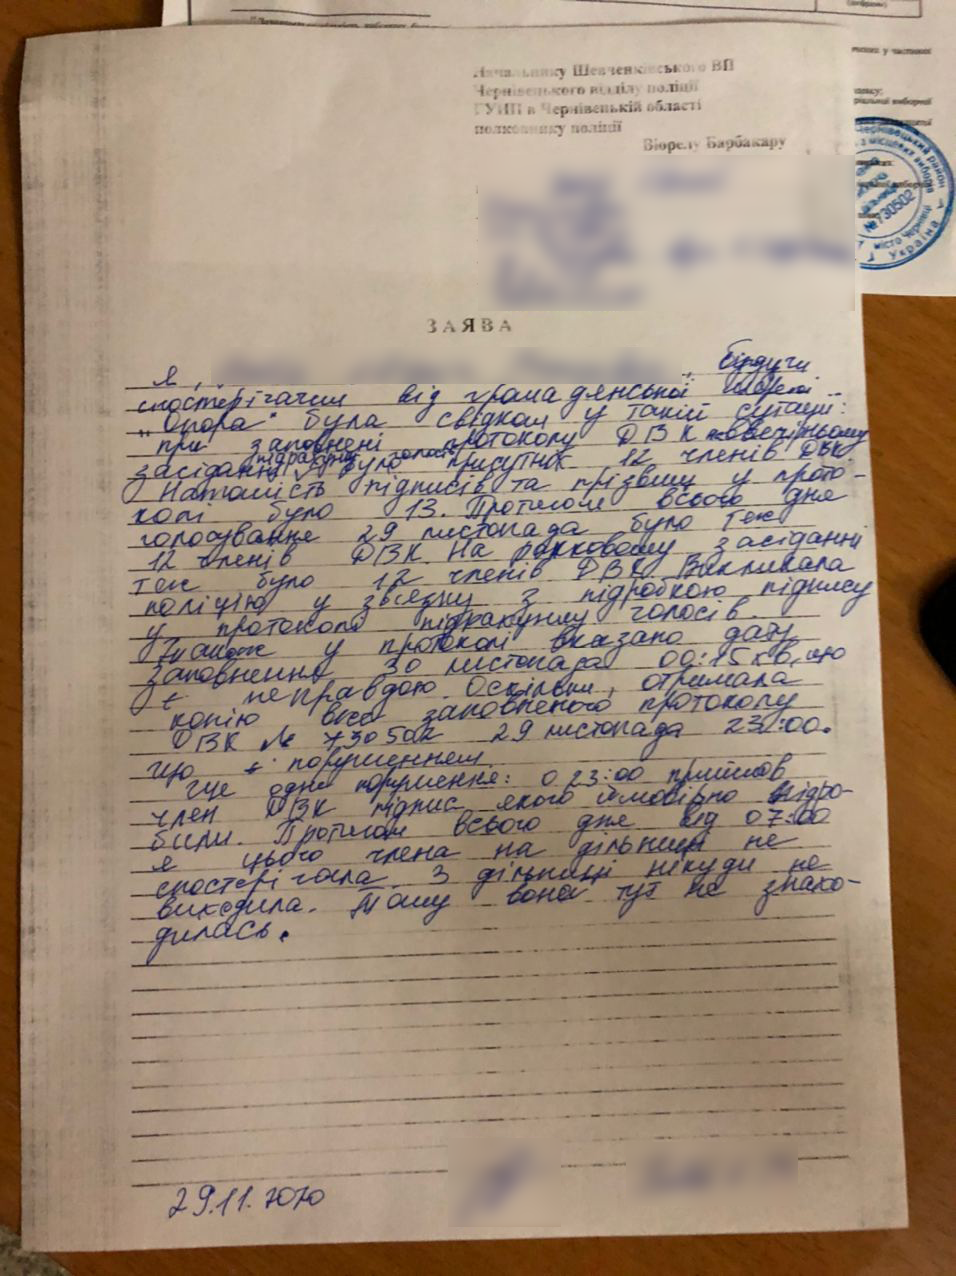 Начальнику Шевченківського ВП
Чернівецького відділу поліції
ГУНП в Чернівецькій області
полковнику поліції
Віорелу Барбакару
ЗАЯВА
Я, , будучи
спостерігачем від громадянської мережі
"Опора" була свідком у такій ситуації:
при заповнені протокола ДВК
підрахунку голосів
засіданні було присутніх 12 членів ДВК
Натомість підписів та прізвищ у прото-
колі було 13. Протягом всього дня
голосування 29 листопада було теж
12 членів ДВК. На ранковому засіданні
теж було 12 членів ДВК. Викликала
поліцію у звязку з підробкою підпису
у протоколі підрахунку голосів.
Також у протоколі вказано дату
заповнення 30 листопада 00:15 хв, що
є неправдою. Оскільки, отримала
копію вже заповненого протоколу
ДВК № 730502 29 листопада 23:00.
що є порушенням.
Ще одне порушення: о 23:00 прийшов
член ДВК підпис якого ймовірно підро-
били. Протягом всього дня від 07:00
я цього члена на дільниці не
спостерігала. З дільниці нікуди не
виходила. Тому вона тут не знахо-
дилась.
29.11.2020
Чернівецький район
з місцевих виборів
№730502
місто Чернівці
Україна